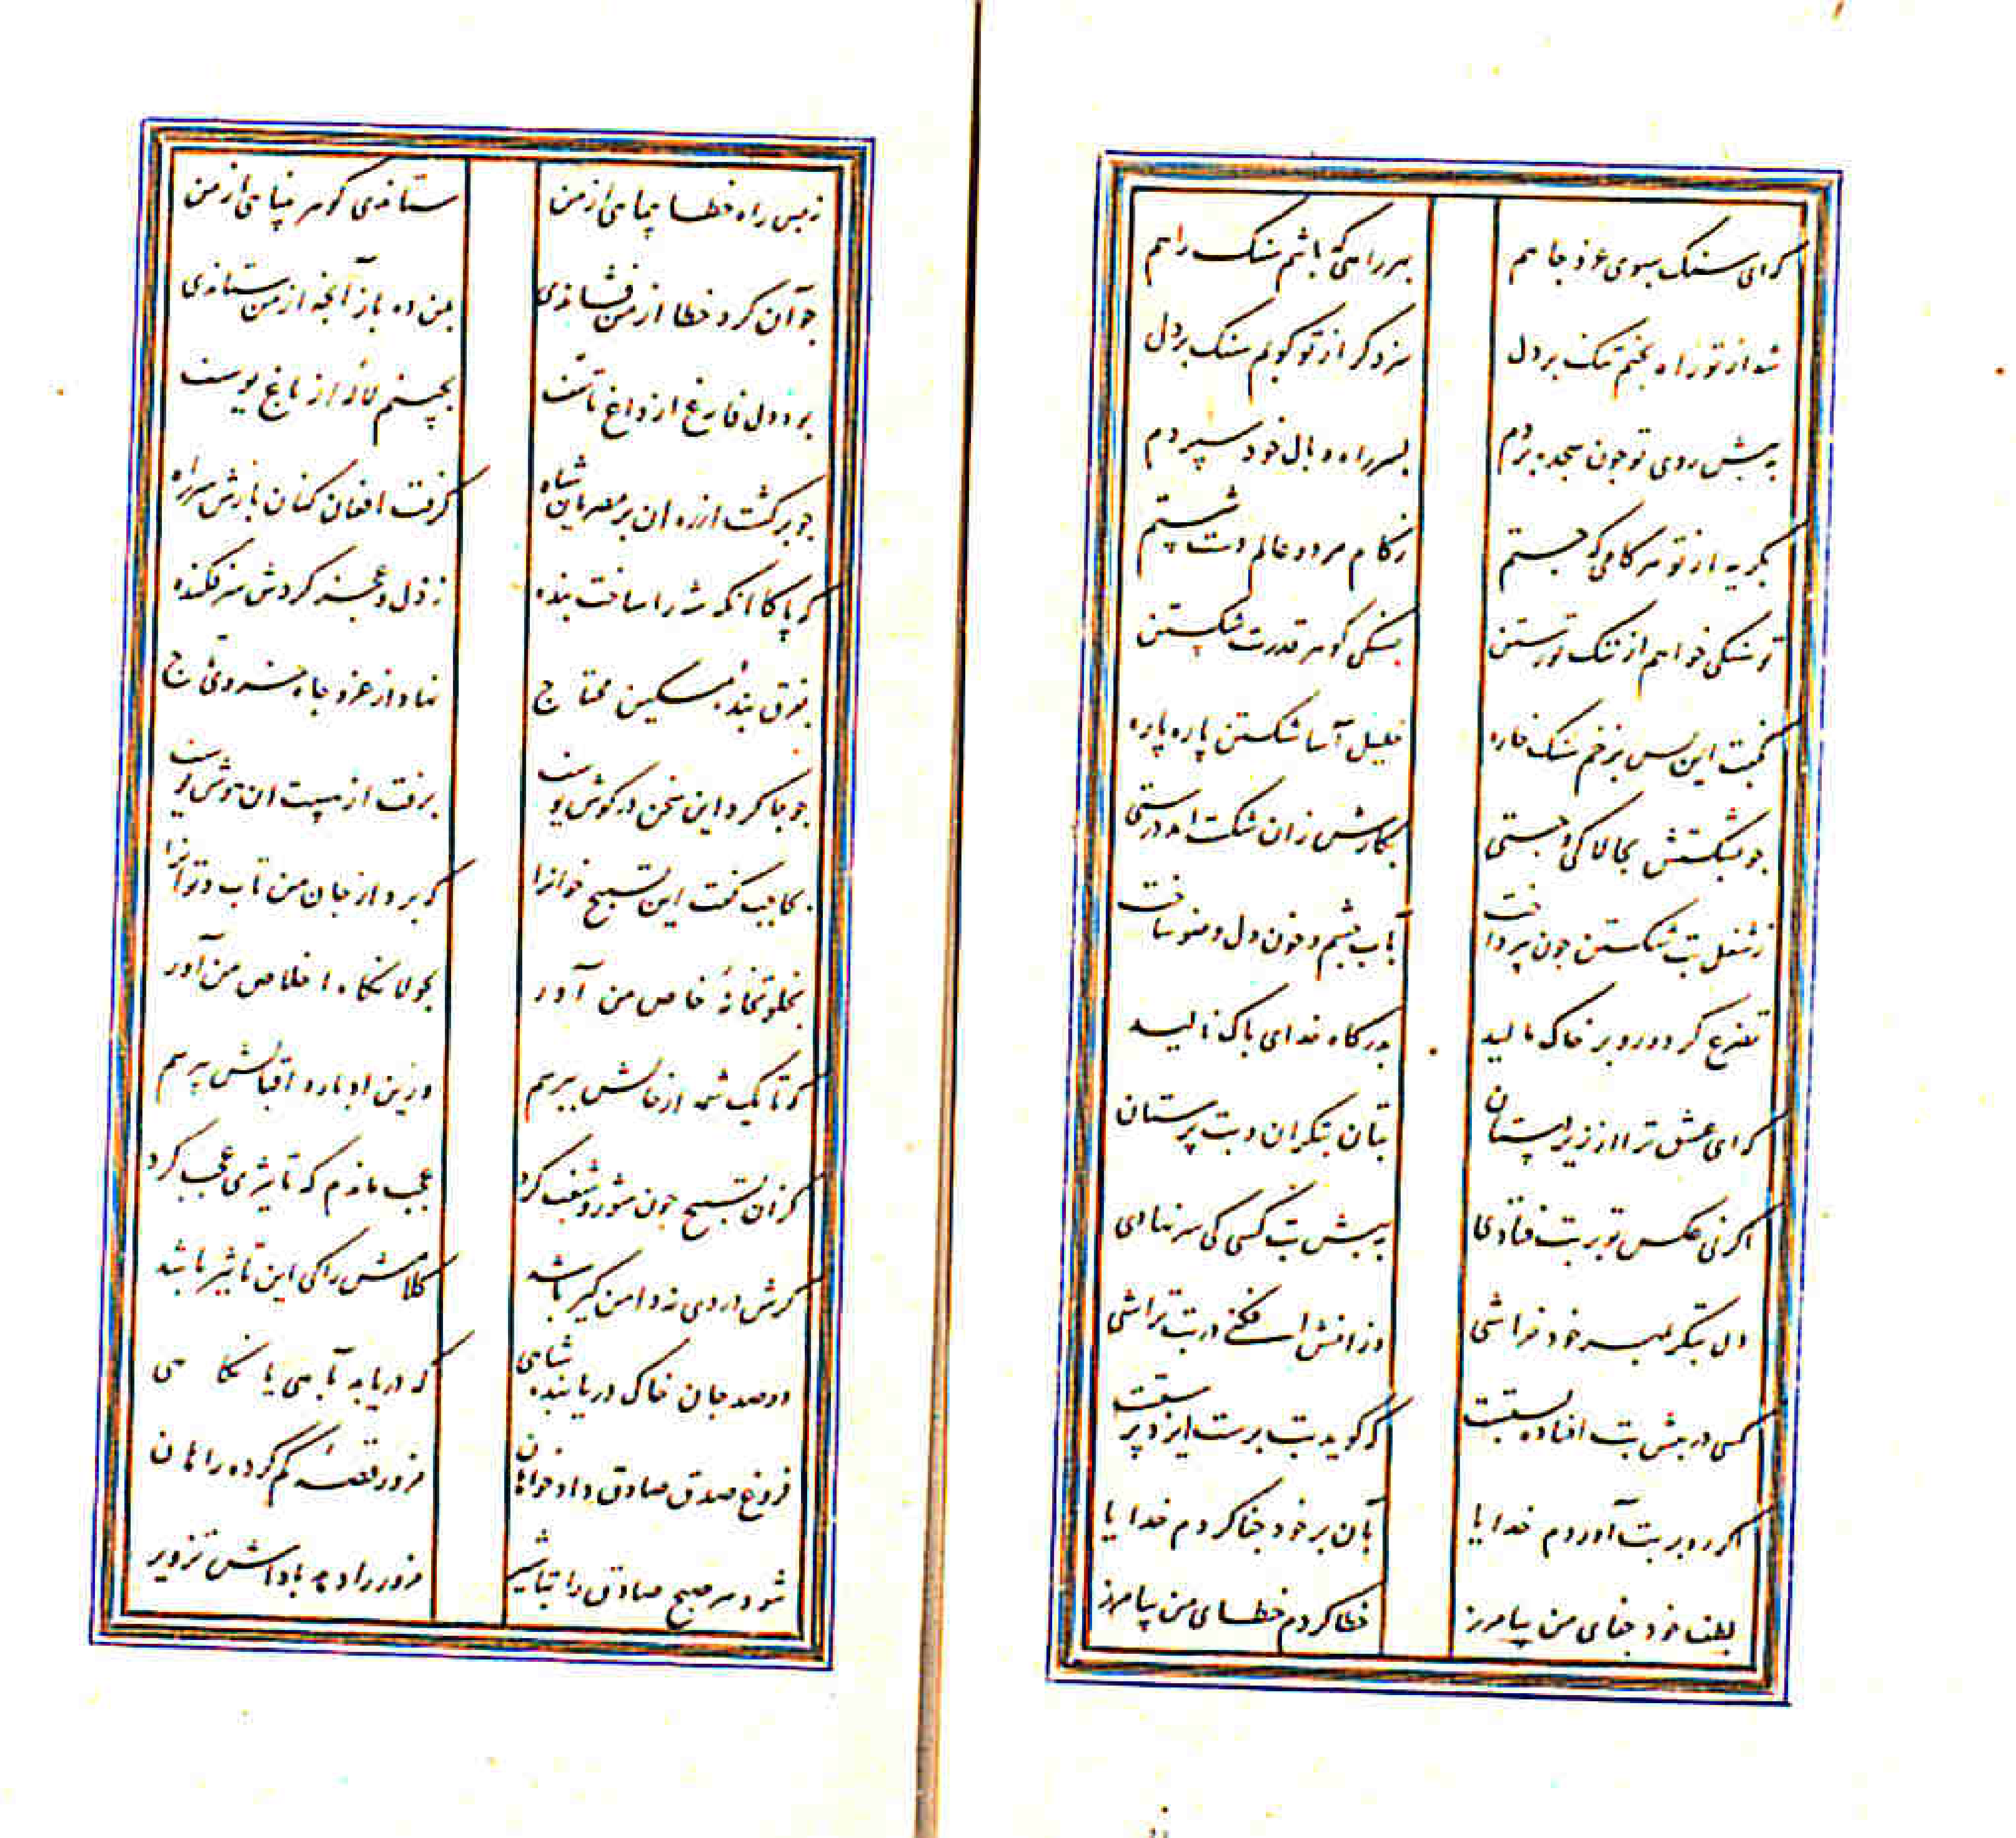 که ای سنک سبوی عز و جاهم بهر راهی که باشم سنک راهم
شد از تو راه بختم تنک بر دل سزد کر از تو کوبم سنک بر دل
به پیش روی تو چون سجده بردم بسر راه وبال خود سپردم
بکریه از تو هر کامی که جستم ز کام هر دو عالم دست شستم
تو سنکی خواهم از ننک تو رستن بسنکی کوهر قدرت شکستن
بکفت این پس بزخم سنک خاره خلیل آسا شکستش پاره پاره
جو بشکستش بجالاکی و جستی بکارش زان شکست امد درستی
ز شغل بت شکستن جون بپرداخت بآب چشم و خون دل وضو ساخت
تضرع کرد و رو بر خاک مالید بدرکاه خدای باک نالید
که ای عشق ترا از زیردستان بتان بتکران و بت پرستان
اکر نی عکس تو بر بت فتادی به پیش بت کسی کی سر نهادی
دل بتکر بمهر خود خراشی وز انش افکنی در بت تراشی
کسی در پیش بت افتاده پستست که کوید بت پرست ایزد پرستست
اکر رو بر بت آوردم خدایا بآن بر خود جفا کردم خدایا
بلطف خود جفای من بیامرز خطا کردم خطای من بیامرز
ز بس راه خطا پیمایی از من ستاندی کوهر بینایی از من
جو آن کرد خطا از من فشاندی بمن ده باز آنچه از من ستاندی
بود دل فارغ از داغ تاسف بچینم لاله از باغ یوسف
جو برکشت از ره ان بر مصریان شاه کرفت افغان کنان بازش سر راه
که پاکا انکه شه را ساخت بنده ز ذل و عجز کردش سر فکنده
بفرق بنده مسکین محتاج نهاد از عز و جاه خسروی تاج
جو جا کرد این سخن در کوش یوسف برفت از هیبت ان هوش یوسف
بحاجب کفت این تسبیح خوانرا که برد از جان من تاب و توانرا
بخلوتخانهٔ خاص من آور بجولانکاه اخلاص من آور
که تا یک شمه از حالش بپرسم وزین ادبار و اقبالش بپرسم
کزان تسبیح جون شور و شغب کرد عجب ماندم که تاثیری عجب کرد
کرش دردی نه دامن کیر باشد کلامش را کی این تاثیر باشد
دو صد جان خاک دریابنده شاهی که دریابد بآهی یا نکاهی
فروغ صدق صادق داد خواهان فرور قصه کم کرده راهان
شود هر صبح صادق را تباشیر فرور را دهد باداش تزویر